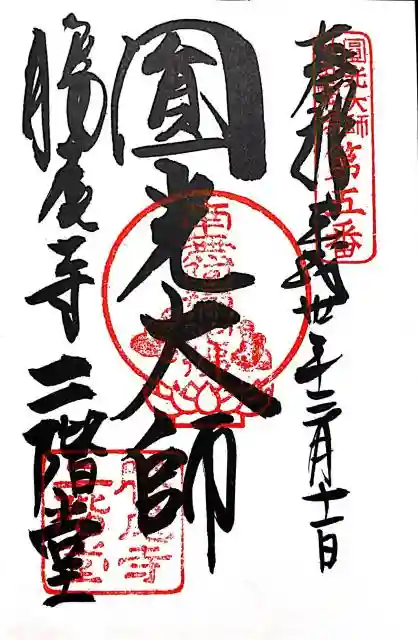 奉拝 平成卅年十二月十一日
圓光大師
第五番
圓光大師
勝尾寺 二階堂
勝尾寺
二階堂